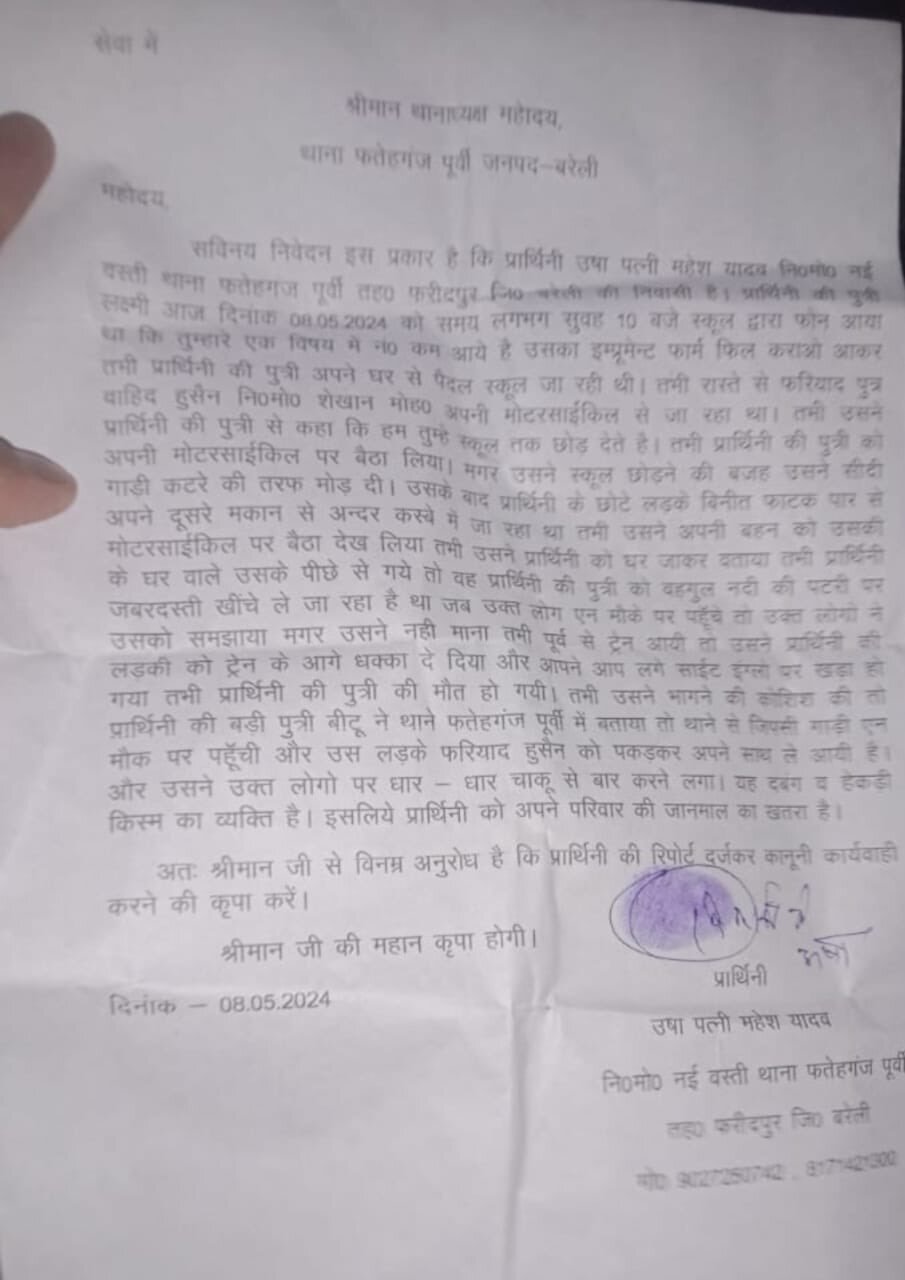 सेवा में
श्रीमान थानाध्यक्ष महोदय,
थाना फतेहगंज पूर्वी जनपद–बरेली
महोदय,
सविनय निवेदन इस प्रकार है कि प्रार्थिनी उषा पत्नी महेश यादव नि0मो0 नई
वस्ती थाना फतेहगंज पूर्वी तह0 फरीदपुर जि0 बरेली की निवासी है। प्रार्थिनी की पुत्री
लक्ष्मी आज दिनांक 08.05.2024 को समय लगभग सुवह 10 बजे स्कूल द्वारा फोन आया
था कि तुम्हारे एक विषय में नं0 कम आये है उसका इम्प्रूमेन्ट फार्म फिल कराओ आकर
तभी प्रार्थिनी की पुत्री अपने घर से पैदल स्कूल जा रही थी। तभी रास्ते से फरियाद पुत्र
वाहिद हुसैन नि0मो0 शेखान मोह0 अपनी मोटरसाईकिल से जा रहा था। तभी उसने
प्रार्थिनी की पुत्री से कहा कि हम तुम्हे स्कूल तक छोड़ देते है। तभी प्रार्थिनी की पुत्री को
अपनी मोटरसाईकिल पर बैठा लिया। मगर उसने स्कूल छोड़ने की बजह उसने सीदी
गाड़ी कटरे की तरफ मोड़ दी। उसके बाद प्रार्थिनी के छोटे लड़के बिनीत फाटक पार से
अपने दूसरे मकान से अन्दर कस्बे में जा रहा था तभी उसने अपनी बहन को उसकी
मोटरसाईकिल पर बैठा देख लिया तभी उसने प्रार्थिनी को घर जाकर वताया तभी प्रार्थिनी
के घर वाले उसके पीछे से गये तो वह प्रार्थिनी की पुत्री को वहगुल नदी की पटरी पर
जबरदस्ती खींचे ले जा रहा है था जब उक्त लोग एन मौके पर पहुँचे तो उक्त लोगो ने
उसको समझाया मगर उसने नही माना तभी पूर्व से ट्रेन आयी तो उसने प्रार्थिनी की
लड़की को ट्रेन के आगे धक्का दे दिया और आपने आप लगे साईट इंग्लो पर खडा हो
गया तभी प्रार्थिनी की पुत्री की मौत हो गयी। तभी उसने भागने की कोशिश की तो
प्रार्थिनी की बड़ी पुत्री बीटू ने थाने फतेहगंज पूर्वी में बताया तो थाने से जिपसी गाड़ी एन
मौक पर पहुँची और उस लड़के फरियाद हुसैन को पकड़कर अपने साथ ले आयी है।
और उसने उक्त लोगो पर धार – धार चाकू से बार करने लगा। यह दबंग व हेकडी
किस्म का व्यक्ति है। इसलिये प्रार्थिनी को अपने परिवार की जानमाल का खतरा है।
अतः श्रीमान जी से विनम्र अनुरोध है कि प्रार्थिनी की रिपोर्ट दर्जकर कानूनी कार्यवाही
करने की कृपा करें।
श्रीमान जी की महान कृपा होगी।
प्रार्थिनी
दिनांक – 08.05.2024
उषा पत्नी महेश यादव
नि0मो0 नई वस्ती थाना फतेहगंज पूर्वी
तह0 फरीदपुर जि0 बरेली
मो0